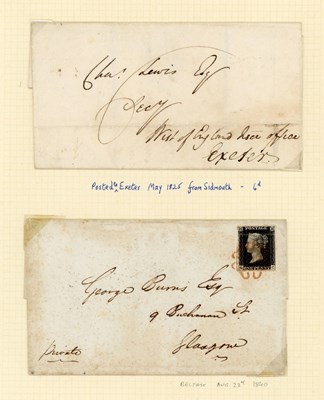 Chas. Lewis Esq
Secy
West of England Insce office
Exeter
Posted to Exeter May 1825 from Sidmouth - 6d
POSTAGE
ONE PENNY
George Burns Esq
9 Buchanan St
Glasgow
Private
BELFAST AUG 23rd 1840